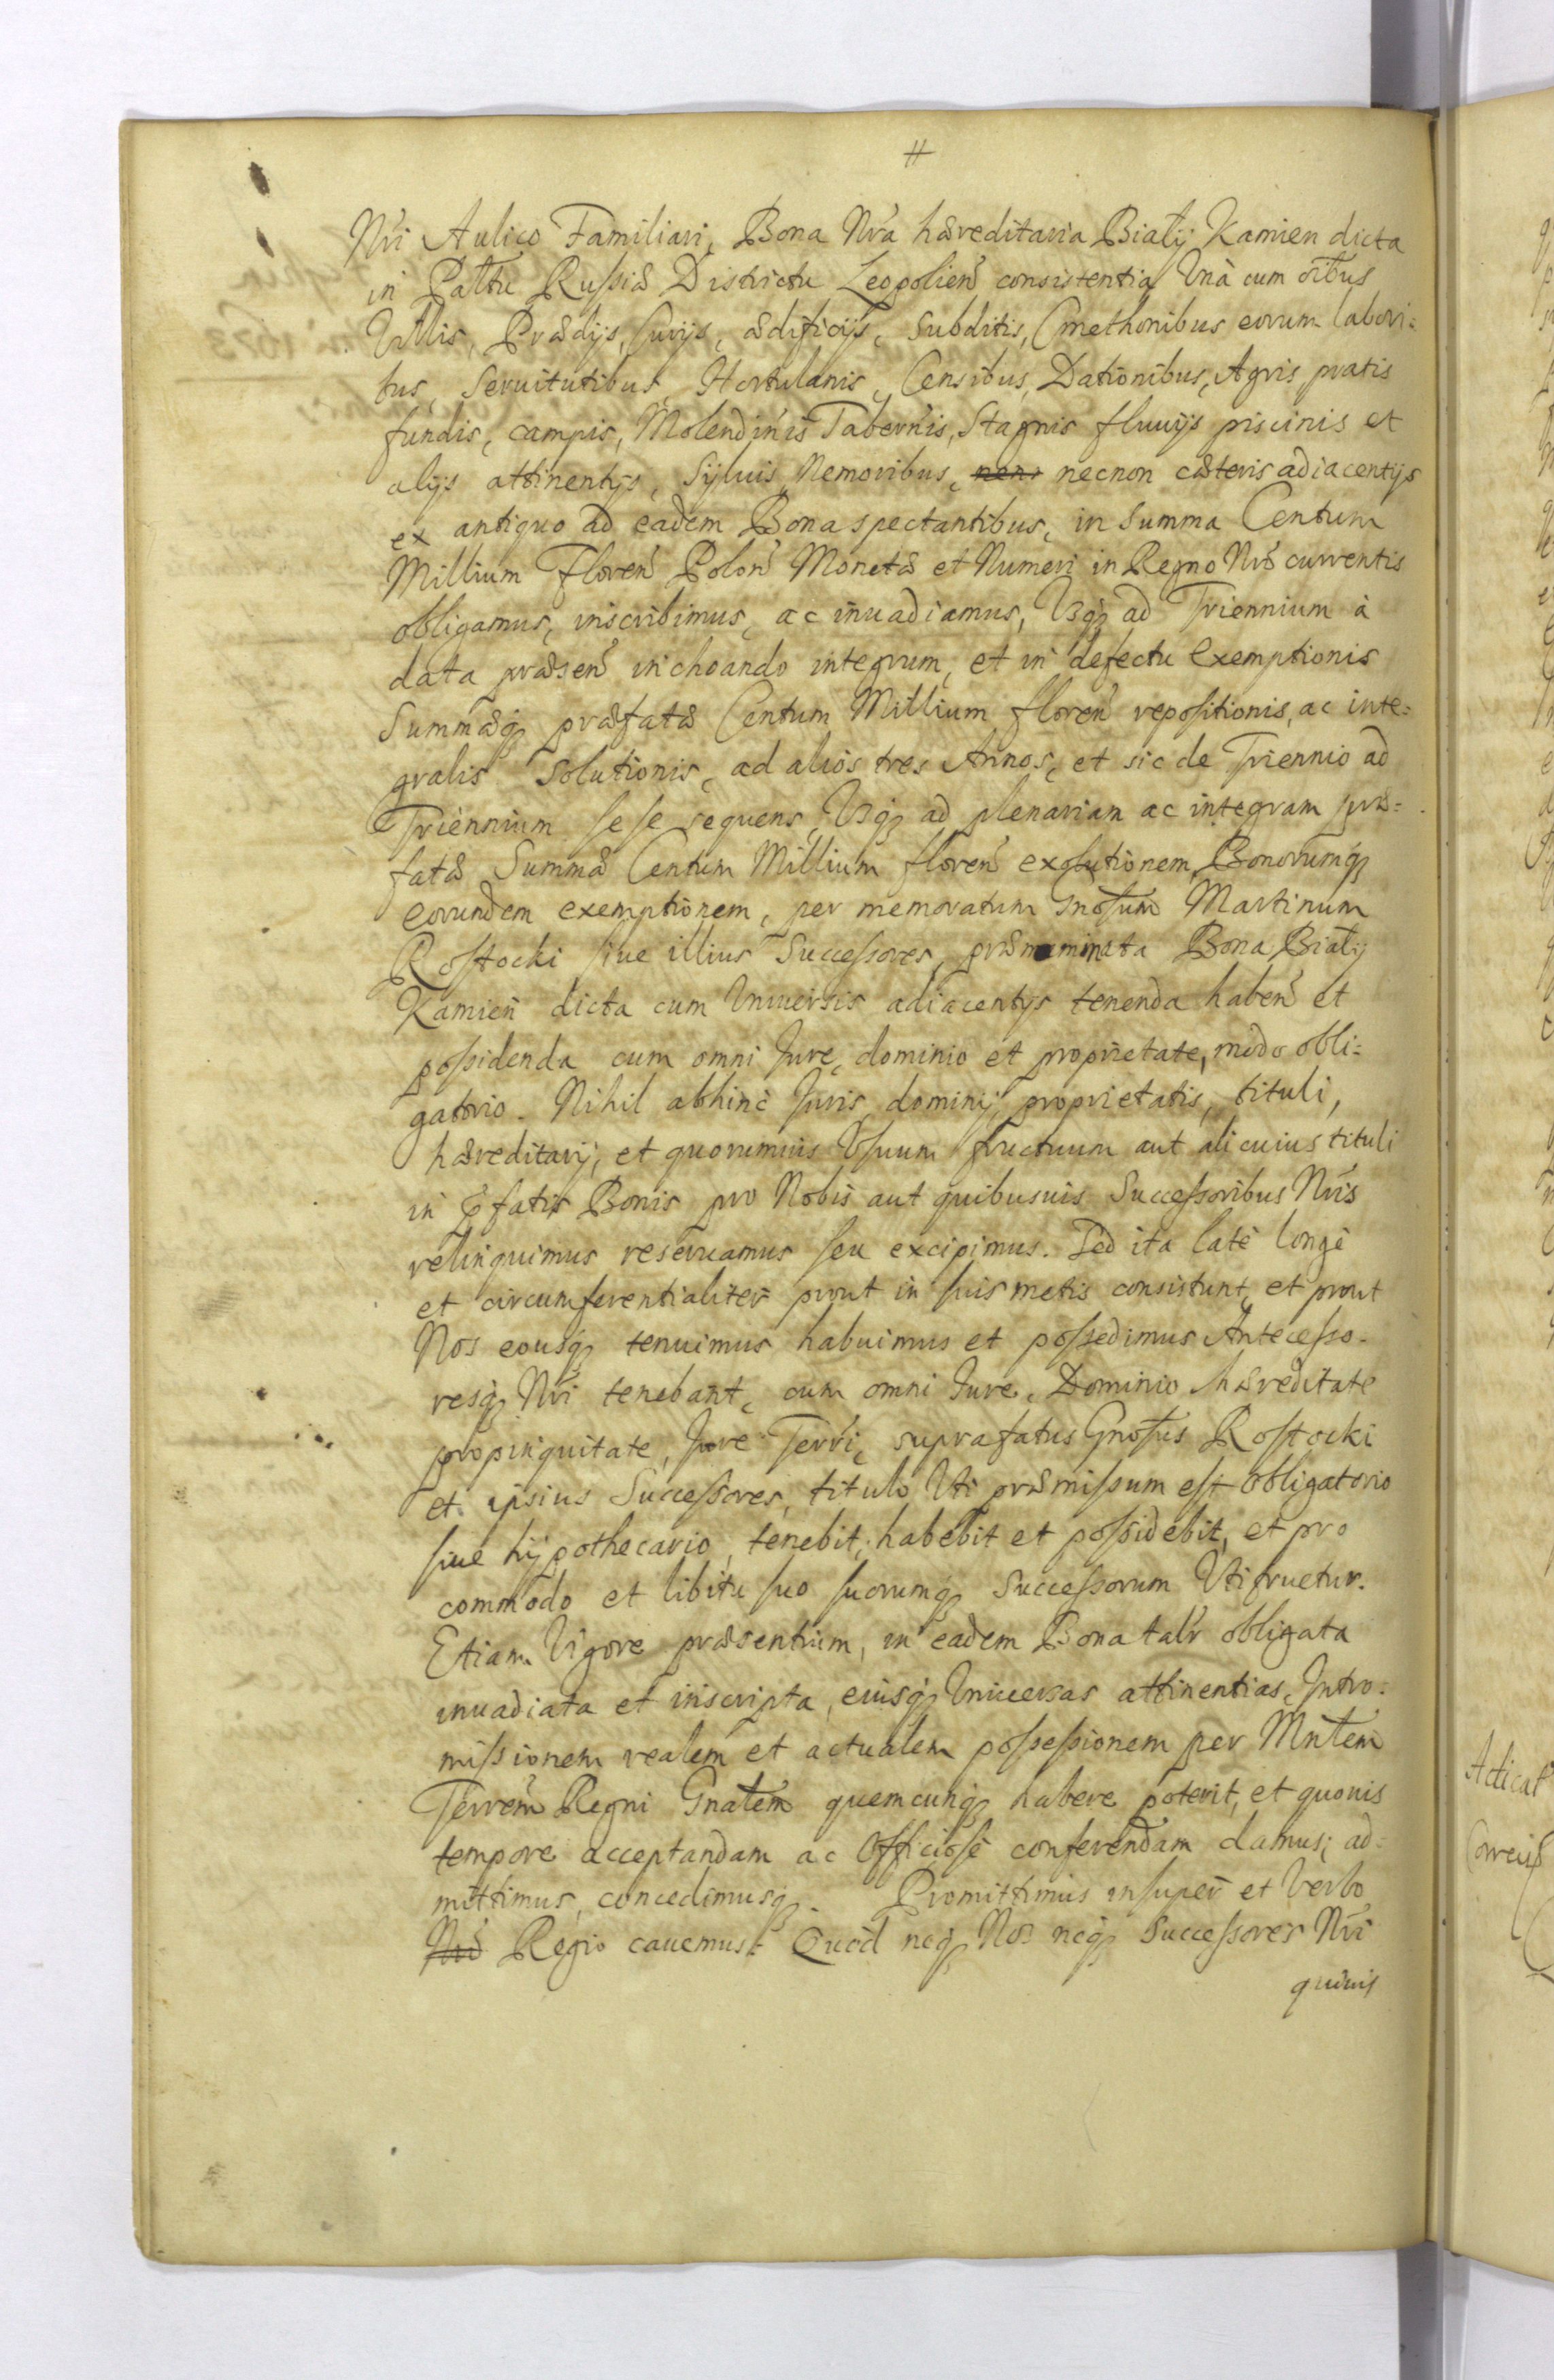 Nri Aulico Familiari, Bona Nra hæreditaria Biały Kamien dicta
in Pałtu Russiæ Districtu Leopolien consistentia Vnà cum oibus
Villis, Prædijs, Curijs, ædificijs, Subditis, Cmethonibus eorum labori=
bus, Seruitutibus, Hortulanis, Censibus, Dationibus, Agris pratis
fundis, campis, Molendinis Tabernis, Stagnis fluuijs piscinis et
alijs attinentijs, Syluis Nemoribus, necnon cæteris adiacentijs
ex antiquo ad eadem Bona spectantibus, in Summa Centum
Millium Floren Polon Monetæ et Numeri in Regno Nro currentis
obligamus, inscribimus, ac inuadiamus, Vsq ad Triennium à
data præsen inchoando integrum, et in defectu Exemptionis
Summæq præfatæ Centum Millium floren repositionis, ac inte=
gralis Solutionis, ad alios tres Annos, et sic de Triennio ad
Triennium sese sequens, Vsq ad plenariam ac integram præ=
fatæ Summæ Centum Millium floren exolutionem, Bonorumq
eorundem exemptionem, per memoratum Gnosum Martinum
Rostocki siue illius Successores, Bona Biały
Kamien dicta cum Vniuersis adiacentijs tenenda haben et
possidenda cum omni Jure, dominio et proprietate, modo obli=
gatorio. Nihil abhinc Juris, dominij proprietatis, tituli,
hæreditarij, et quorumuis Vsuum fructuum aut alicuius tituli
in pfatis Bonis pro Nobis aut quibusuis Successoribus Nris
relinquimus reseruamus seu excipimus. Sed ita latè longè
et circumferentialiter prout in suis metis consistunt, et prout
Nos eousq tenuimus habuimus et possedimus Antecesso-
resq Nri tenebant, cum omni Jure, Dominio hæreditate
propinquitate, Jure Terri, suprafatus Gnosus Rostocki
et ipsius Successores, titulo Vti præmissum est obligatorio
siue hypothecario, tenebit, habebit et possidebit, et pro
commodo et libitu suo suorumq Successorum Vtifruetur.
Etiam Vigore præsentium, in eadem Bona talr obligata
inuadiata et inscripta, eiusq Vniuersas attinentias, Intro=
missionem realem et actualem possessionem per Mntem
Terrem Regni Gnatem quemcunq habere poterit, et quouis
tempore acceptandam ac Officiosè conferendam damus, ad=
mittimus, concedimusq. Promittimus insuper et Verbo
Nro Regio cauemus: Quod neq Nos neq Successores Nri
quiuis